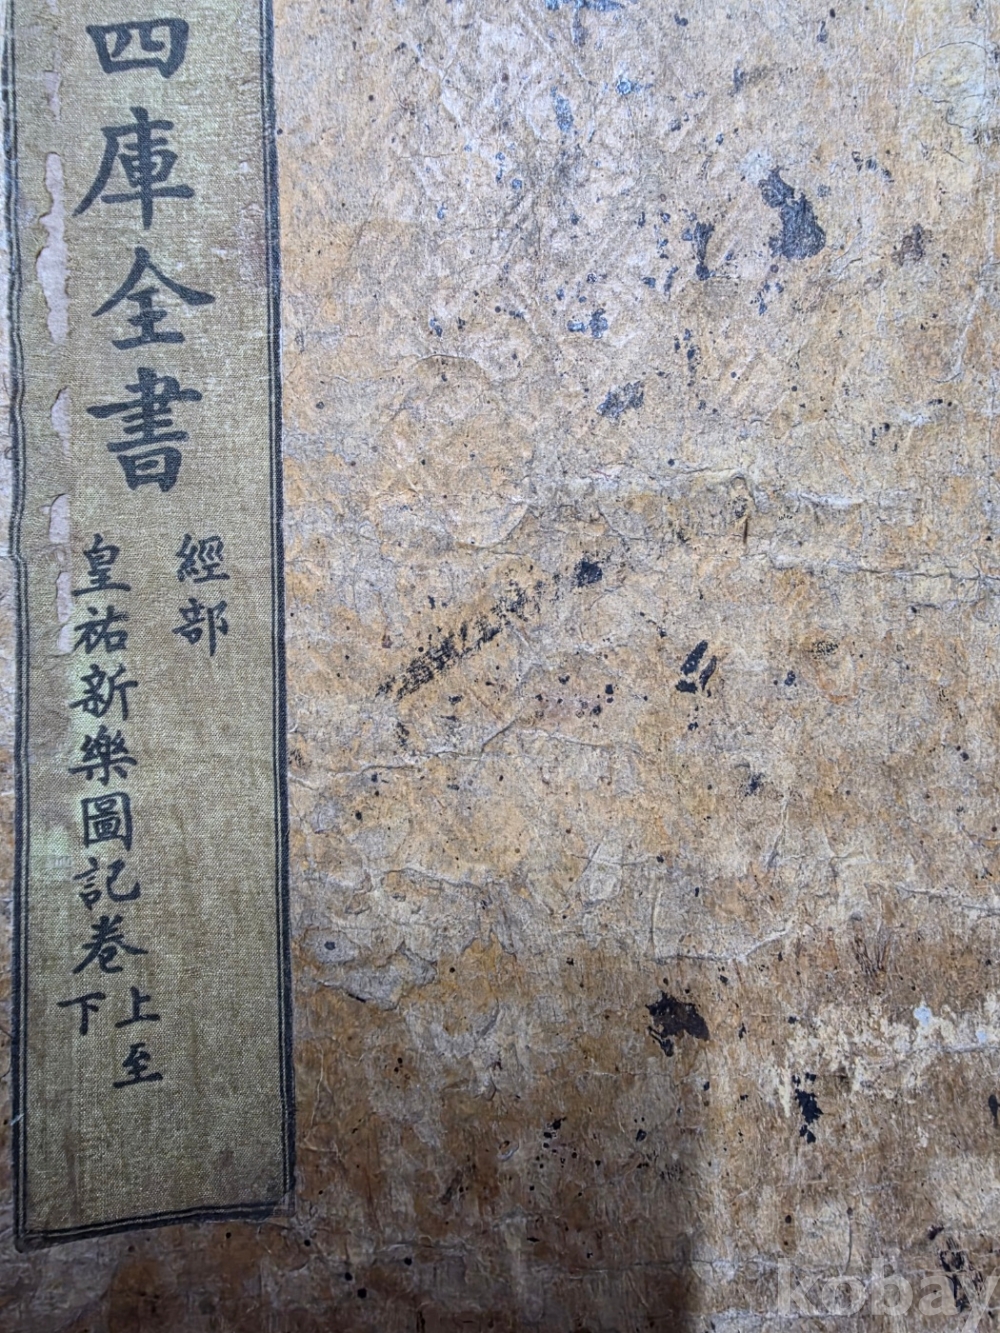 四庫全書
經部
皇祐新樂圖記卷上至下
kobay